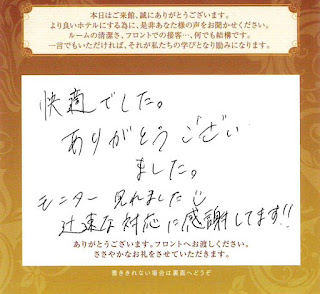 本日はご来館、誠にありがとうございます。
より良いホテルにする為に、是非あなた様の声をお聞かせください。
ルームの清潔さ、フロントでの接客…、何でも結構です。
一言でもいただければ、それが私たちの学びとなり励みになります。
快適でした。
ありがとうござい
ました。
モニター見れました
迅速な対応に感謝してます!!
ありがとうございます。フロントへお渡しください。
ささやかなお礼をさせていただきます。
書ききれない場合は裏面へどうぞ